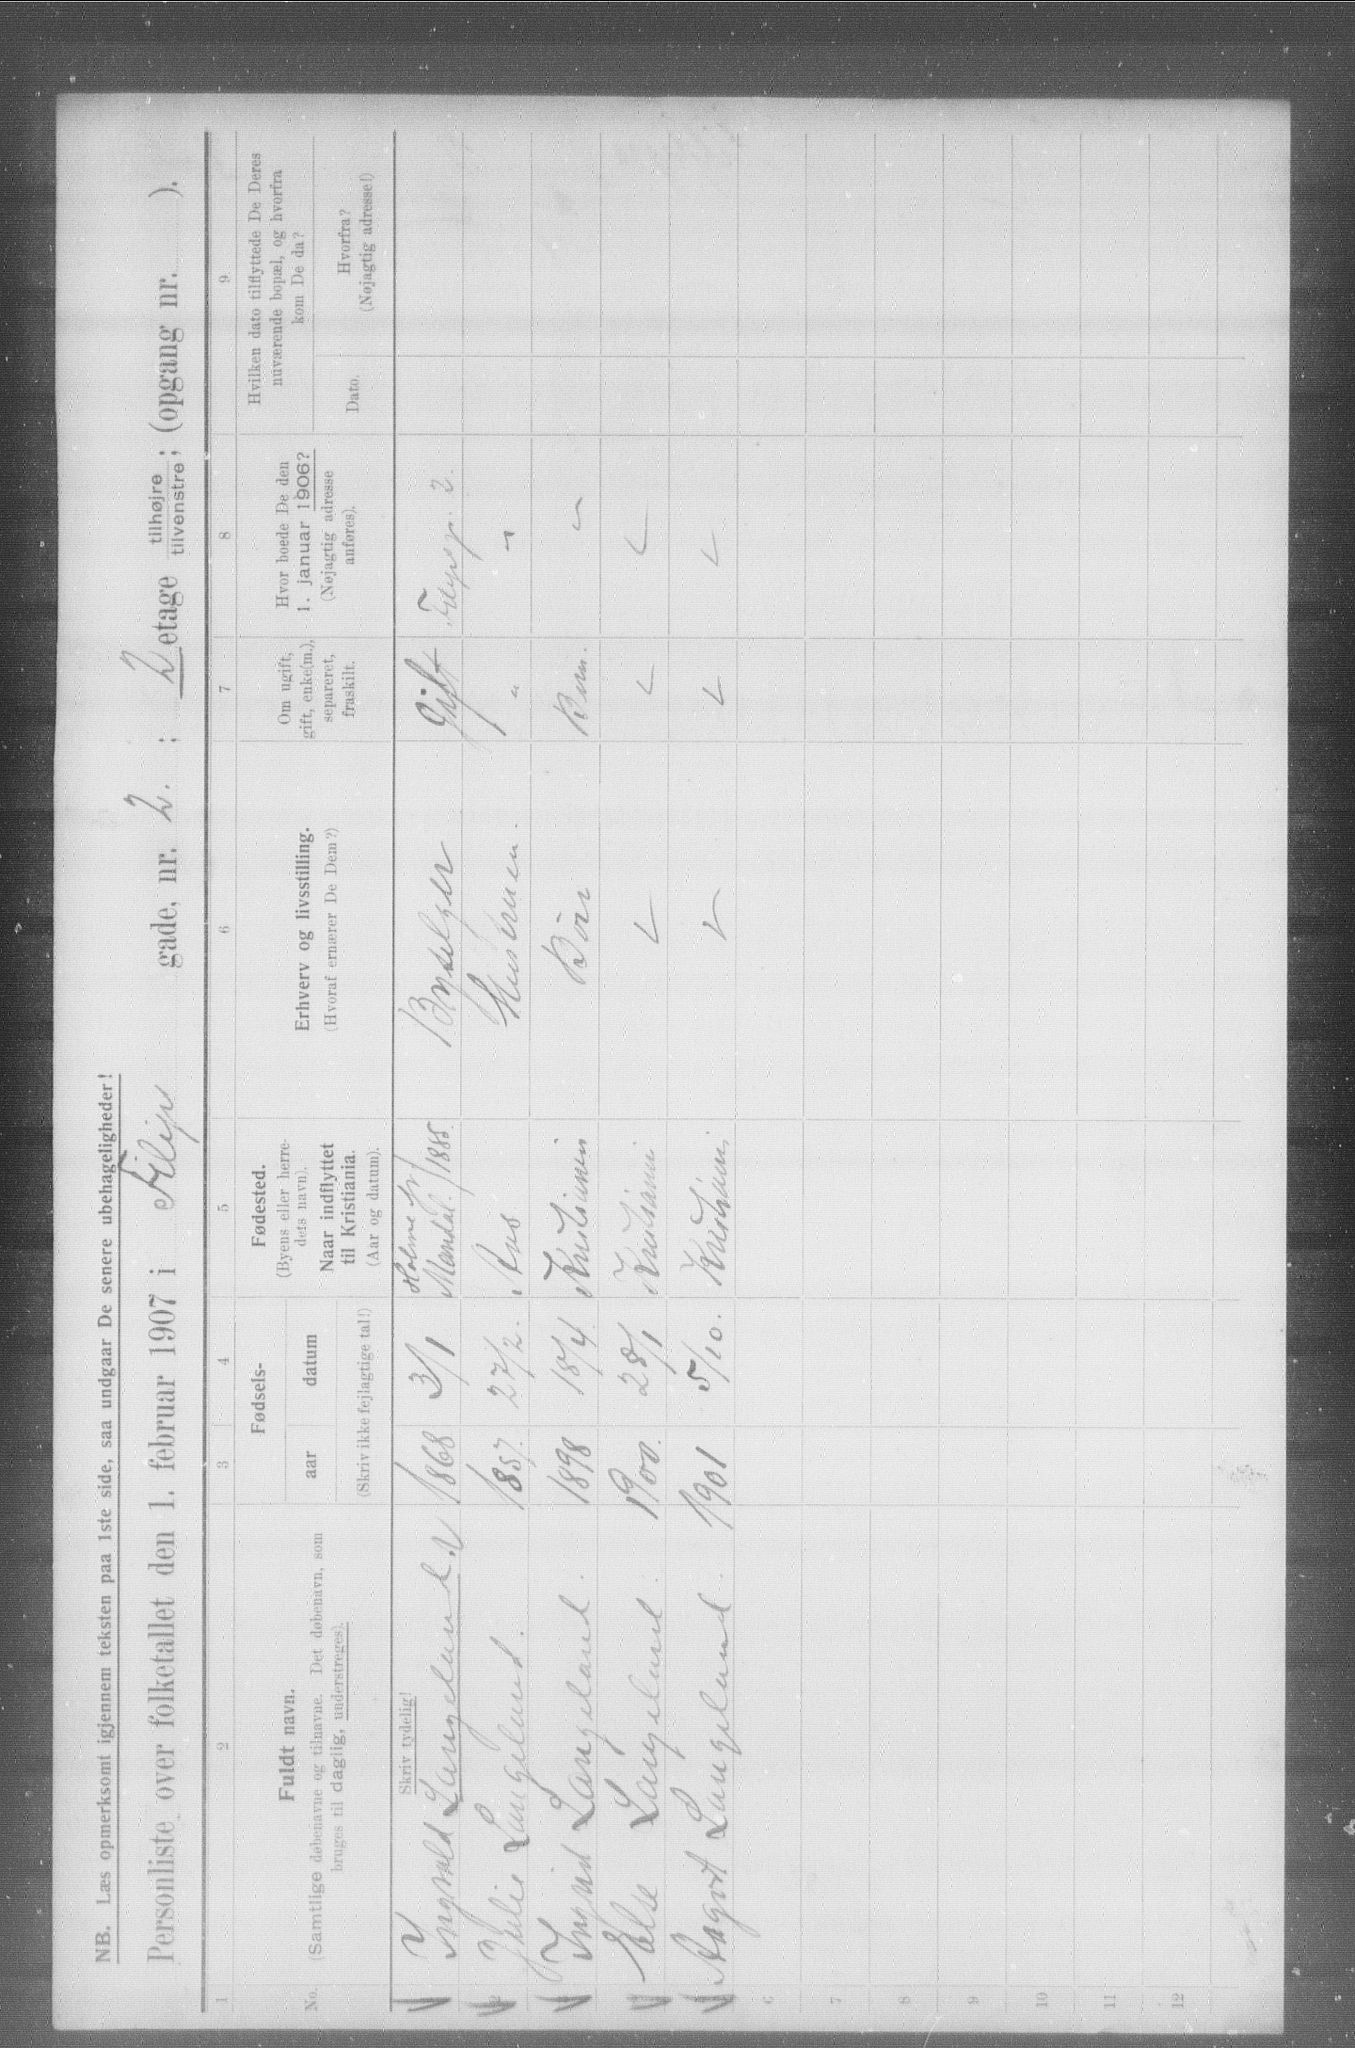 NB. Læs opmerksomt igjennem teksten paa 1ste side, saa undgaar De senere ubehageligheder!
Personliste over folketallet den 1. februar 1907 i Filip gade, nr. 2. ; 2 etage tilhøjre tilvenstre; (opgang nr. ).
1 2 3 4 5 6 7 8 9
No.
Fuldt navn.
(Samtlige døbenavne og tilnavne. Det døbenavn, som
bruges til daglig, understreges).
Fødsels-
aar datum
(Skriv ikke fejlagtige tal!)
Fødested.
(Byens eller herre-
dets navn).
Naar indflyttet
til Kristiania.
(Aar og datum).
Erhverv og livsstilling.
(Hvoraf ernærer De Dem?)
Om ugift,
gift, enke(m.),
separeret,
fraskilt.
Hvor boede De den
1. januar 1906?
(Nøjagtig adresse
anføres).
Hvilken dato tilflyttede De Deres
nuværende bopæl, og hvorfra
kom De da?
Dato.
Hvorfra?
(Nøjagtig adresse!)
Skriv tydelig!
Ingvald Langeland. 1868 3/1 Holme Mandal. 1885. Gift 2.
2 Julie Langeland. 1857. 27/2. Aas Hustruen. "  "
Ingrid Langeland. 1898 18/4. Kristiania Børn
Else Langeland. 1900. 28/1 Kristiania
Aagot Langeland. 1901 5/10. Kristiania
6
7
8
9
10
11
12